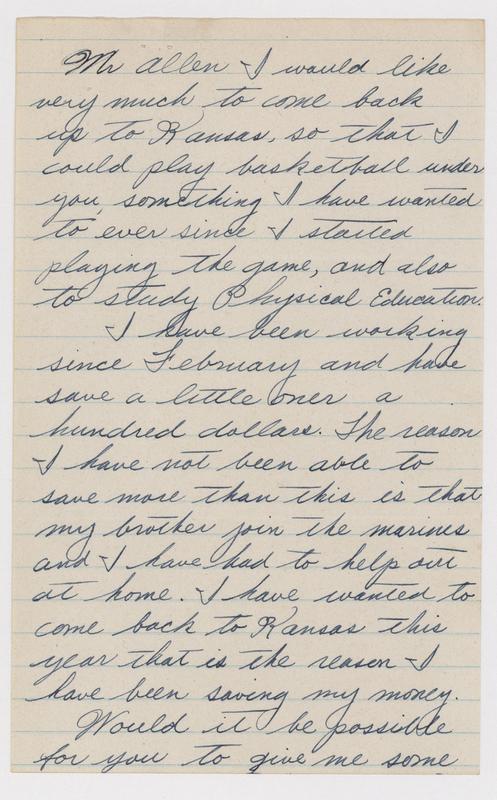 Mr Allen I would like
very much to come back
up to Kansas, so that I
could play basketball under
you, something I have wanted
to ever since I started
playing the game, and also
to study Physical Education.
I have been working
since February and have
save a little over a
hundred dollars. The reason
I have not been able to
save more than this is that
my brother join the marines
and I have had to help out
at home. I have wanted to
come back to Kansas this
year that is the reason I
have been saving my money.
Would it be possible
for you to give me some